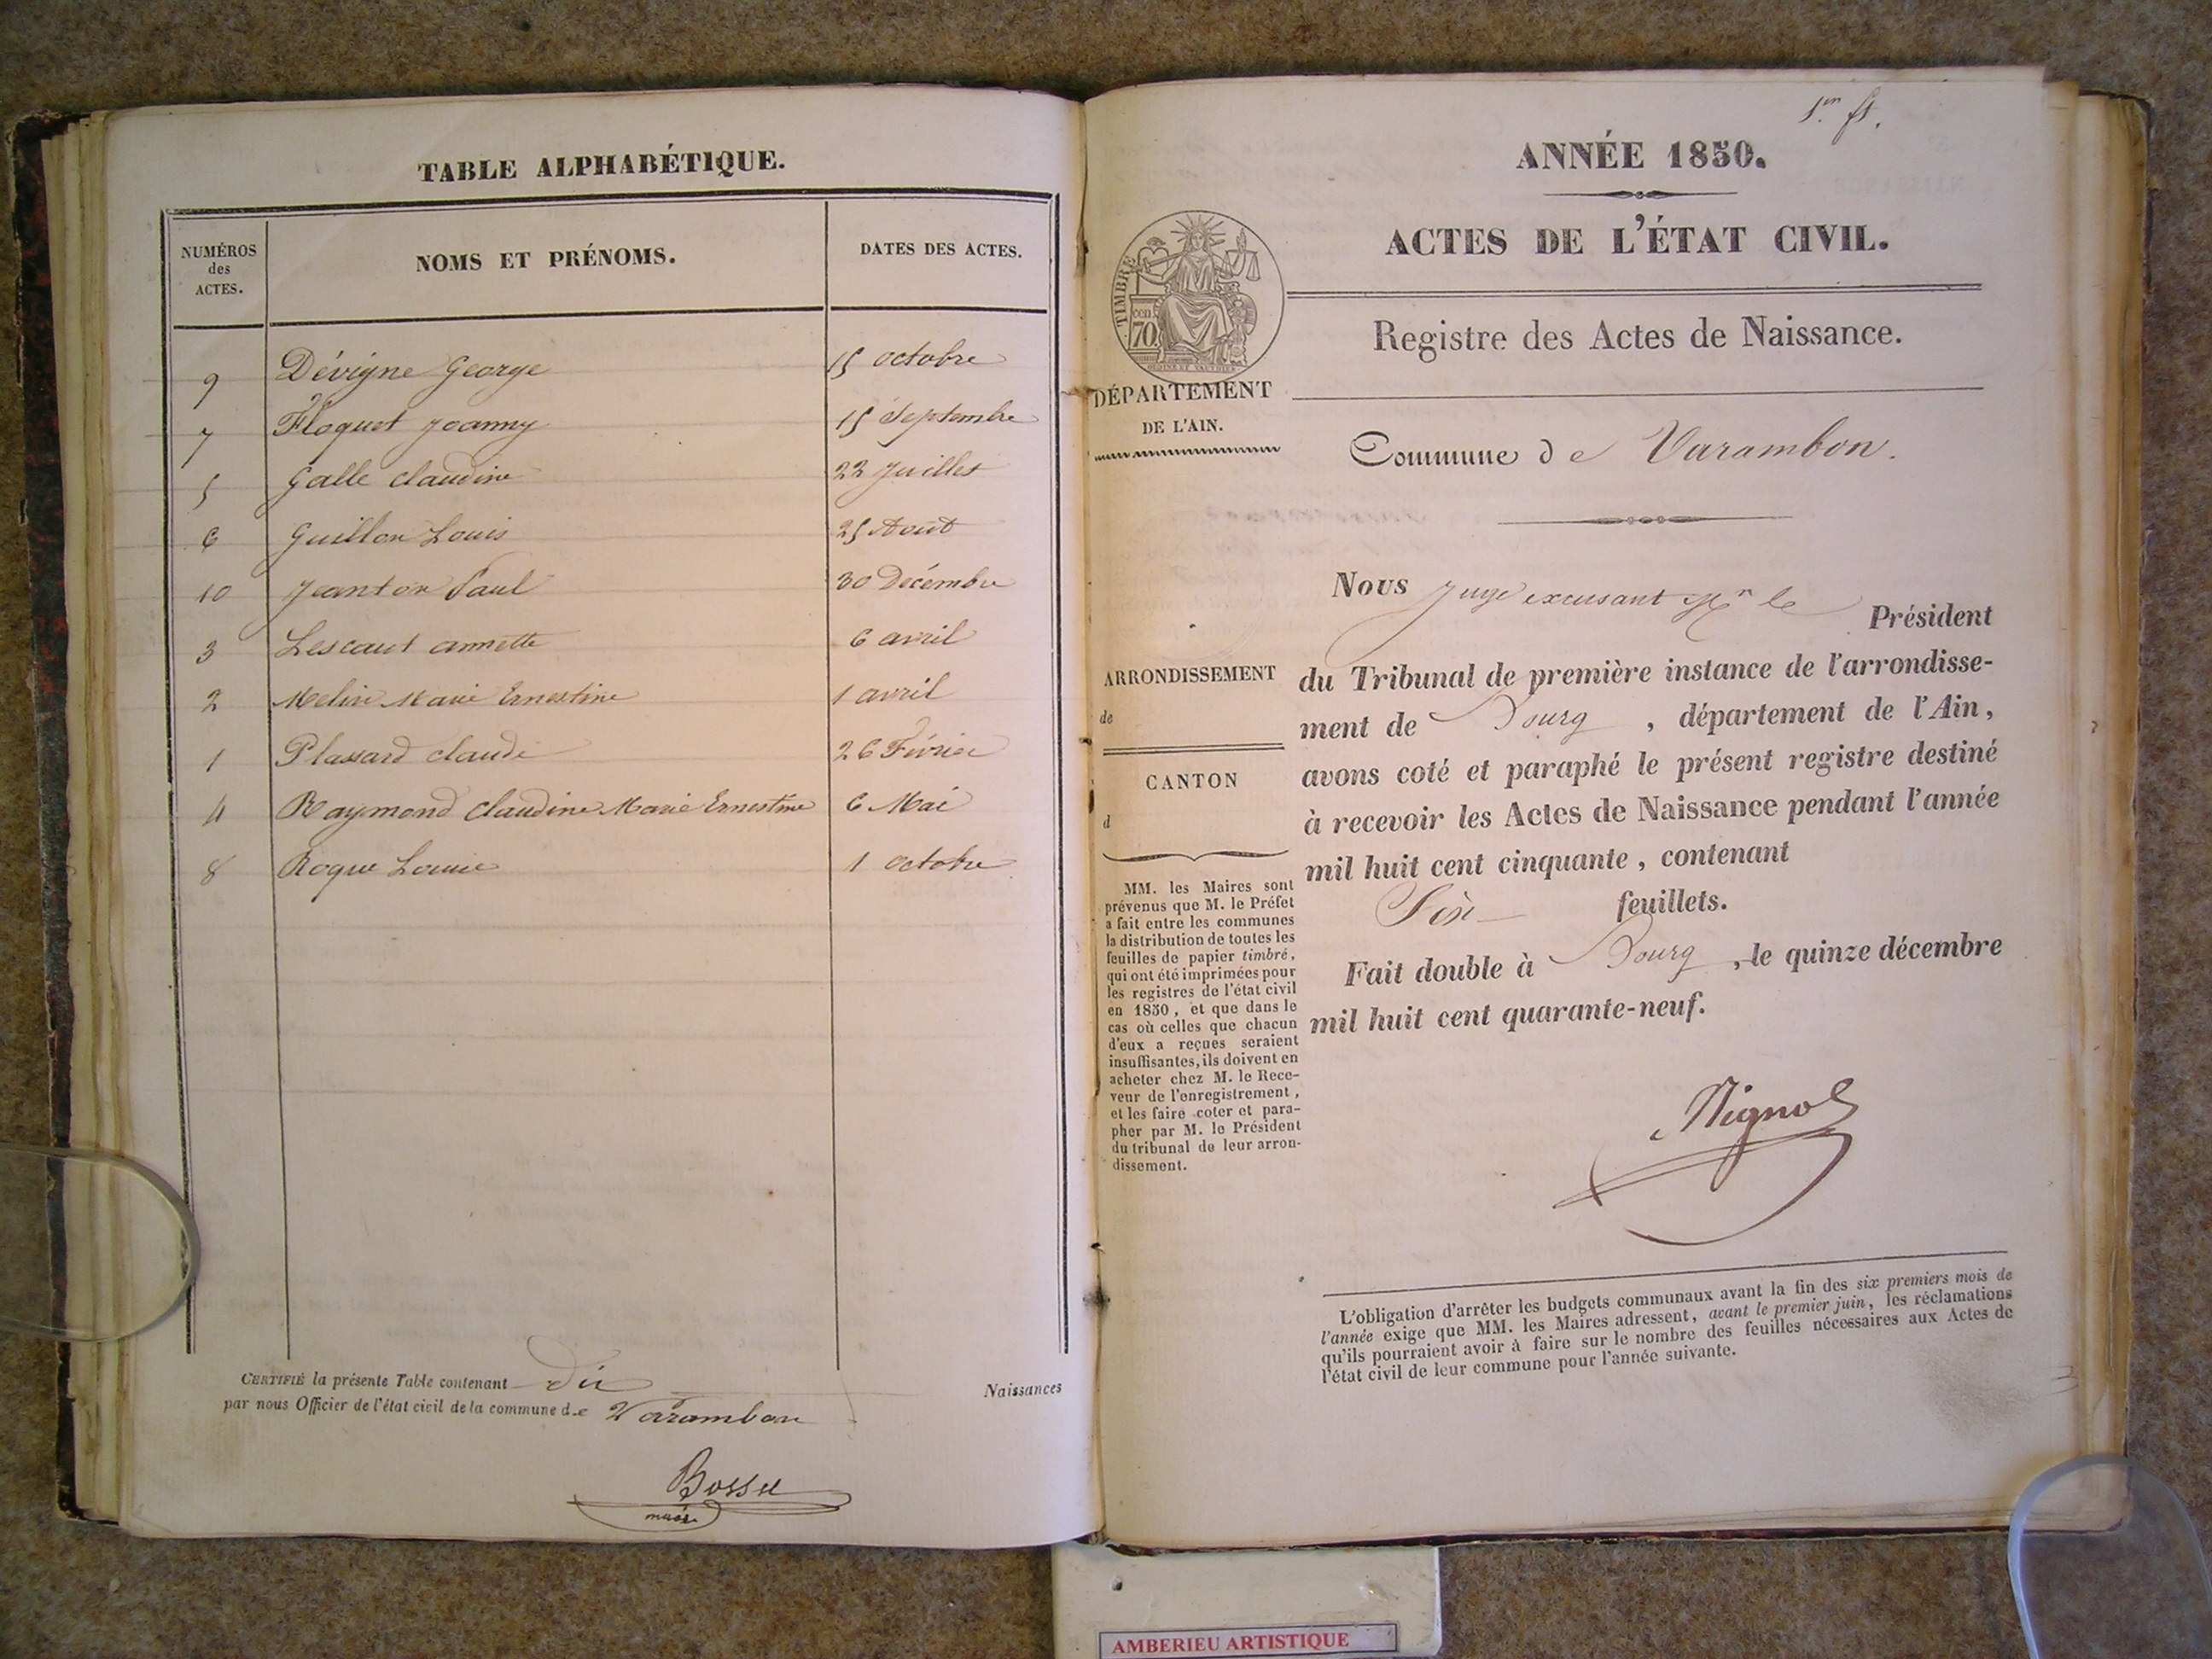 TABLE ALPHABÉTIQUE.
NUMÉROS des ACTES.
NOMS ET PRÉNOMS.
DATES DES ACTES.
9 Dévigne George 15 octobre
7 Floquet Joanny 15 Septembre
5 Galle Claudine 22 Juillet
6 Guillon Louis 25 Aout
10 Jeanton Paul 30 Décembre
3 Lescaut annette 6 avril
2 Melin Marie Ernestine 1 avril
1 Plassard claude 26 Février
4 Raymond Claudine Marie Ernestine 6 Mai
8 Roque Louise 1 octobre
CERTIFIÉ la présente Table contenant dix Naissances
par nous Officier de l'état civil de la commune de Varambon
Bossu
maire
1er ft.
ANNÉE 1850.
ACTES DE L'ÉTAT CIVIL.
TIMBRE
cen
70
Registre des Actes de Naissance.
DÉPARTEMENT
DE L'AIN.
Commune de Varambon.
Nous Juge excusant Mr le Président
du Tribunal de première instance de l'arrondisse-
ment de Bourg, département de l'Ain,
avons coté et paraphé le présent registre destiné
à recevoir les Actes de Naissance pendant l'année
mil huit cent cinquante, contenant
Six feuillets.
Fait double à Bourg, le quinze décembre
mil huit cent quarante-neuf.
ARRONDISSEMENT
de
CANTON
d
MM. les Maires sont
prévenus que M. le Préfet
a fait entre les communes
la distribution de toutes les
feuilles de papier timbré,
qui ont été imprimées pour
les registres de l'état civil
en 1850, et que dans le
cas où celles que chacun
d'eux a reçues seraient
insuffisantes, ils doivent en
acheter chez M. le Rece-
veur de l'enregistrement,
et les faire coter et para-
pher par M. le Président
du tribunal de leur arron-
dissement.
L'obligation d'arrêter les budgets communaux avant la fin des six premiers mois de
l'année exige que MM. les Maires adressent, avant le premier juin, les réclamations
qu'ils pourraient avoir à faire sur le nombre des feuilles nécessaires aux Actes de
l'état civil de leur commune pour l'année suivante.
AMBERIEU ARTISTIQUE